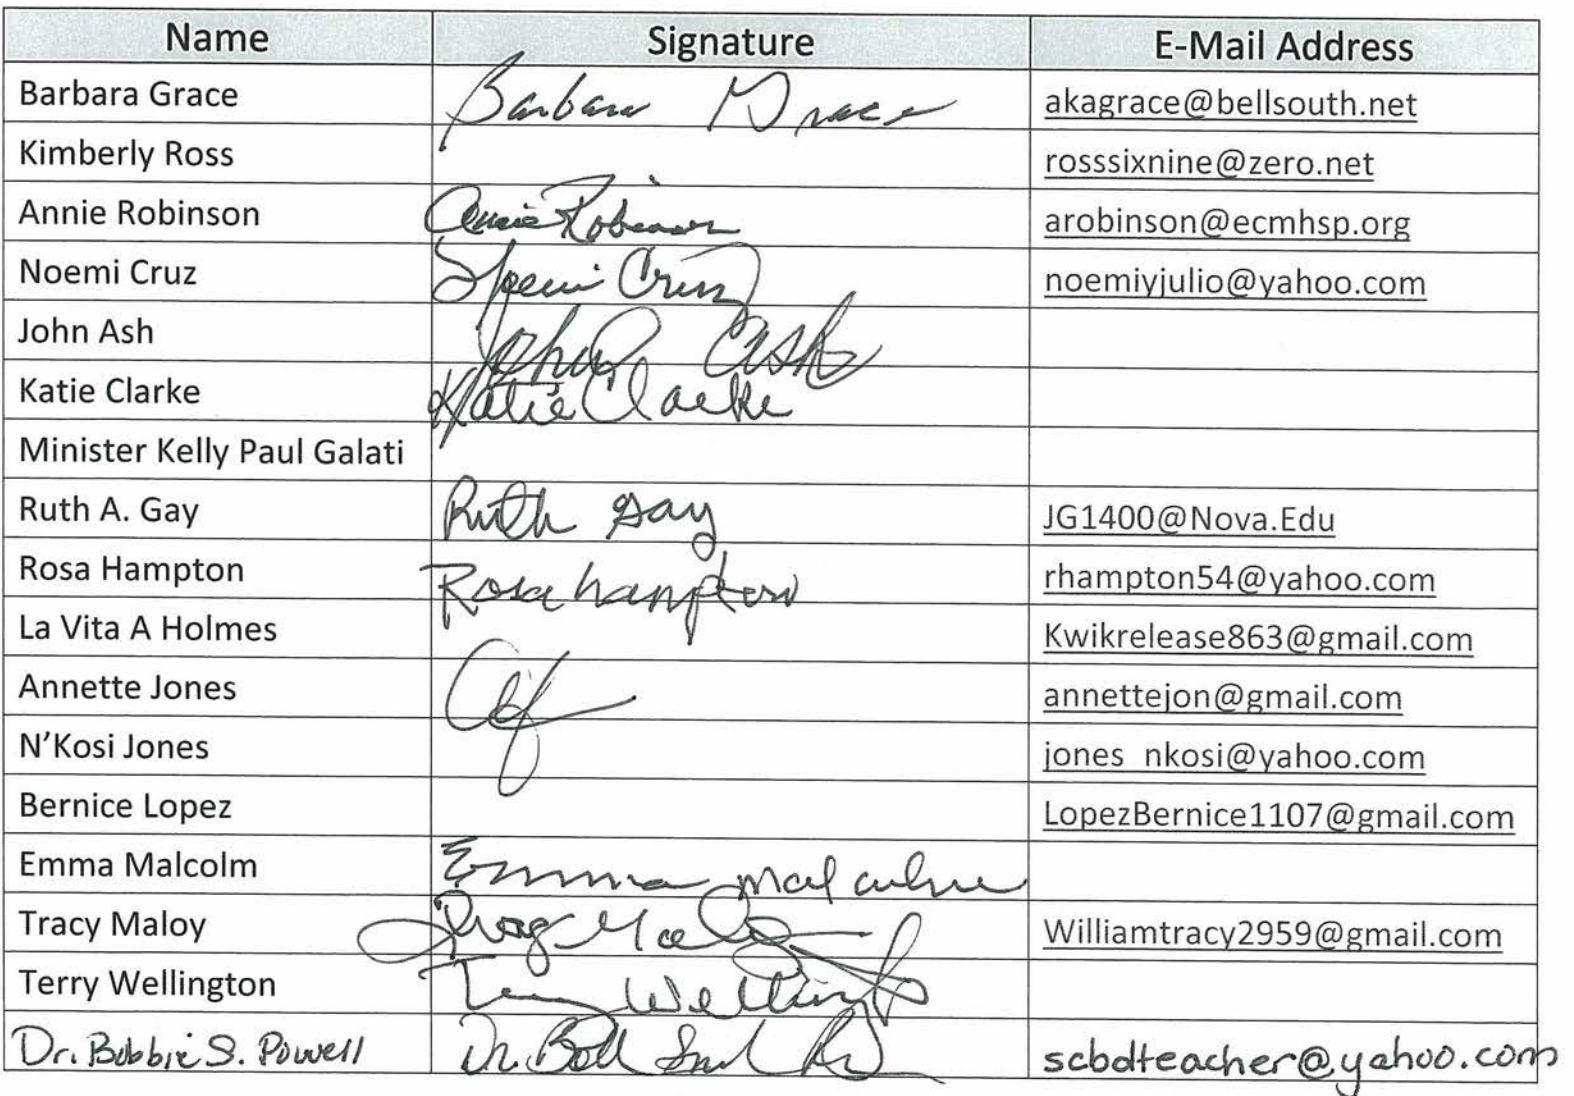 Name Signature E-Mail Address
Barbara Grace Barbara Grace akagrace@bellsouth.net
Kimberly Ross rosssixnine@zero.net
Annie Robinson Annie Robinson arobinson@ecmhsp.org
Noemi Cruz Noemi Cruz noemiyjulio@yahoo.com
John Ash John Ash
Katie Clarke Katie Clarke
Minister Kelly Paul Galati
Ruth A. Gay Ruth Gay JG1400@Nova.Edu
Rosa Hampton Rosa hampton rhampton54@yahoo.com
La Vita A Holmes Kwikrelease863@gmail.com
Annette Jones annettejon@gmail.com
N'Kosi Jones jones_nkosi@yahoo.com
Bernice Lopez LopezBernice1107@gmail.com
Emma Malcolm Emma Malcolm
Tracy Maloy Tracy Maloy Williamtracy2959@gmail.com
Terry Wellington Terry Wellington
Dr. Bobbie S. Powell Dr. scbdteacher@yahoo.com